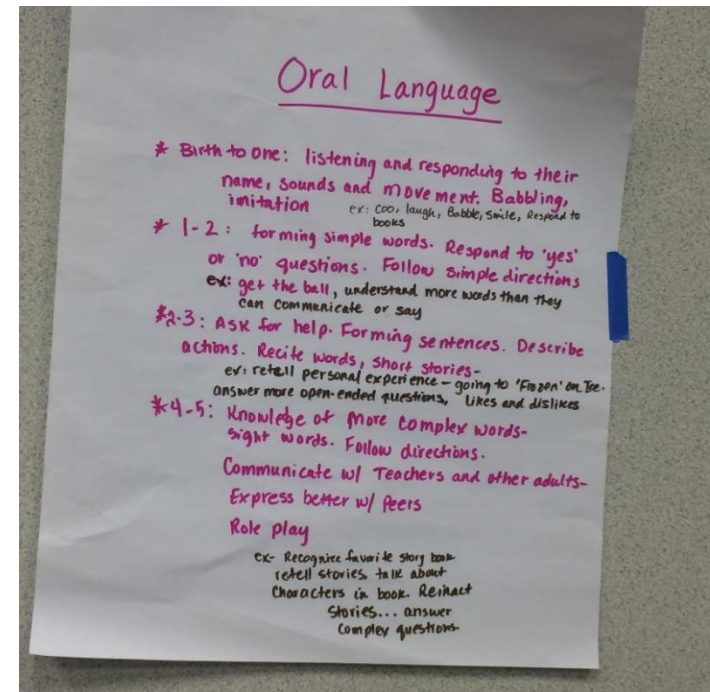 Oral Language
* Birth to one: listening and responding to their
name, sounds and movement. Babbling,
imitation ex: coo, laugh, Babble, smile, Respond to
books
* 1-2: forming simple words. Respond to 'yes'
or 'no' questions. Follow simple directions
ex: get the ball, understand more words than they
can communicate or say
*2-3: Ask for help. Forming sentences. Describe
actions. Recite words, short stories-
ex: retell personal experience - going to 'Frozen' on Ice.
answer more open-ended questions, likes and dislikes
*4-5: Knowledge of More complex words-
sight words. Follow directions.
Communicate w/ Teachers and other adults-
Express better w/ Peers
Role play
ex- Recognize favorite story book
retell stories talk about
Characters in book. Reinact
Stories... answer
Complex questions-